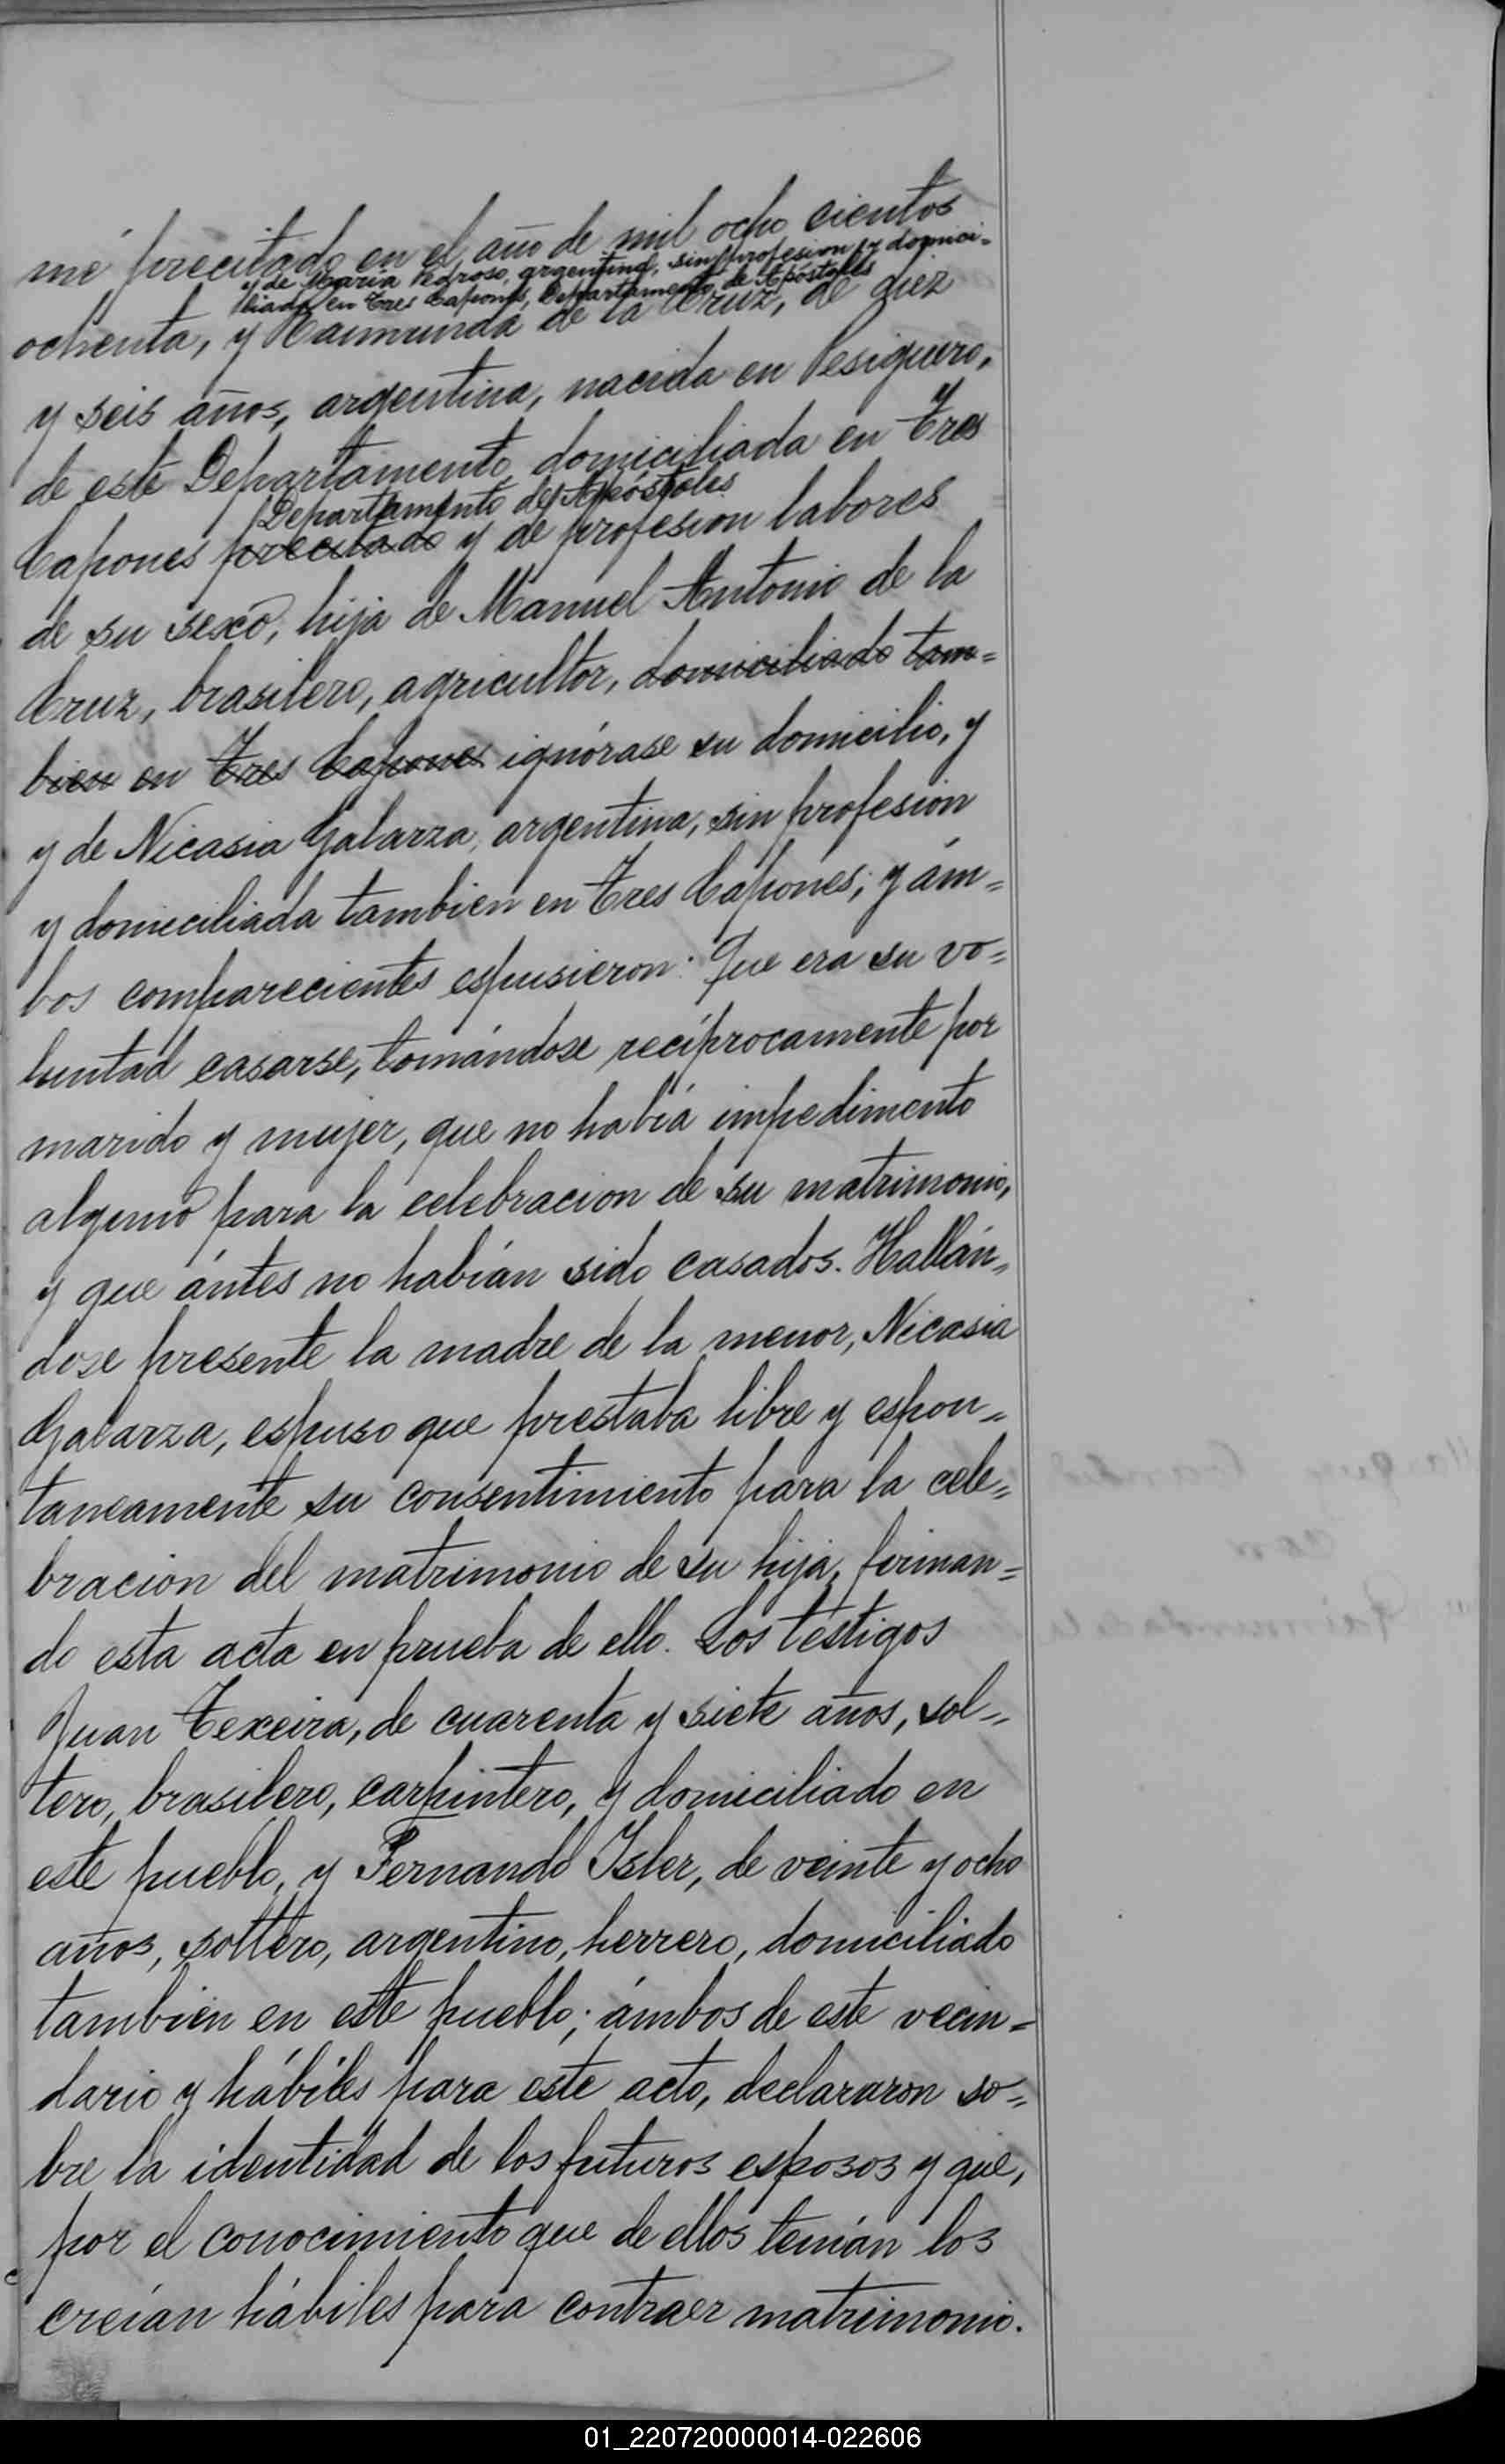 mé precitado en el año de mil ocho cientos
y de María Pedroso, argentina, sin profesion y domici=
liada en Tres Capones, Departamento de Apóstoles
ochenta, y Raimunda de la Cruz, de diez
y seis años, argentina, nacida en Pesiguero,
de este Departamento, y domiciliada en Tres
Departamento de Apóstoles
Capones precitado y de profesion labores
de su sexo, hija de Manuel Antonio de la
Cruz, brasilero, agricultor, domiciliado tam=
bien en Tres Capones ignórase su domicilio, y
y de Nicasia Galarza, argentina, sin profesion
y domiciliada tambien en Tres Capones; y ám=
bos comparecientes espusieron: Que era su vo=
luntad casarse, tomándose recíprocamente por
marido y mujer, que no habia impedimento
alguno para la celebracion de su matrimonio,
y que ántes no habían sido casados. Hallán=
dose presente la madre de la menor, Nicasia
Galarza, espuso que prestaba libre y espon=
taneamente su consentimiento para la cele=
bracion del matrimonio de su hija, firman=
do esta acta en prueba de ello. Los testigos
Juan Texeira, de cuarenta y siete años, sol=
tero, brasilero, carpintero, y domiciliado en
este pueblo, y Fernando Isler, de veinte y ocho
años, soltero, argentino, herrero, domiciliado
tambien en este pueblo; ámbos de este vecin=
dario y hábiles para este acto, declararon so=
bre la identidad de los futuros esposos y que,
por el conocimiento que de ellos tenían los
creían hábiles para contraer matrimonio.
01_220720000014-022606